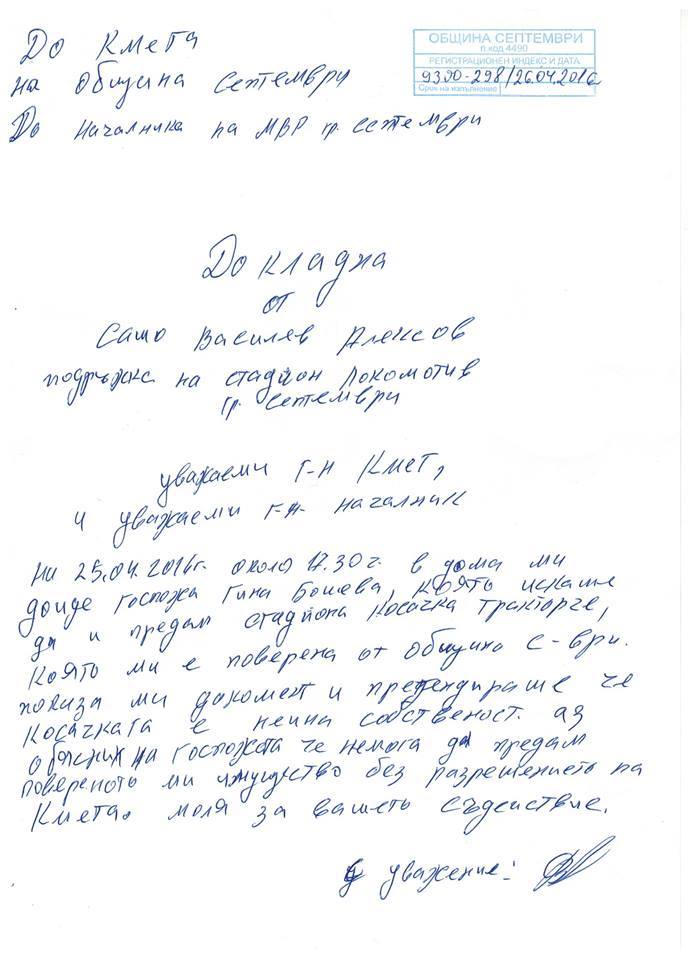 До Кмета
на Община Септември
До Началника на МВР гр. септември
ОБЩИНА СЕПТЕМВРИ
п.код 4490
РЕГИСТРАЦИОНЕН ИНДЕКС И ДАТА
9300-298/26.04.2016
Срок на изпълнение
Докладна
от
Сашо Василев Алексов
подръжка на стадион Локомотив
гр. Септември
уважаеми г-н Кмет,
и уважаеми г-н. началник
На 25.04.2016г. около 17.30 ч. в дома ми
дойде госпожа Гина Бошева, която искаше
да и предам стадиона косачка тракторче,
която ми е поверена от община С-ври.
показа ми докомент и претендираше че
косачката е нейна собственост. аз
обясних на госпожата че немога да предам
повереното ми имущество без разрешението на
Кмета. моля за вашето съдействие.
С уважение: